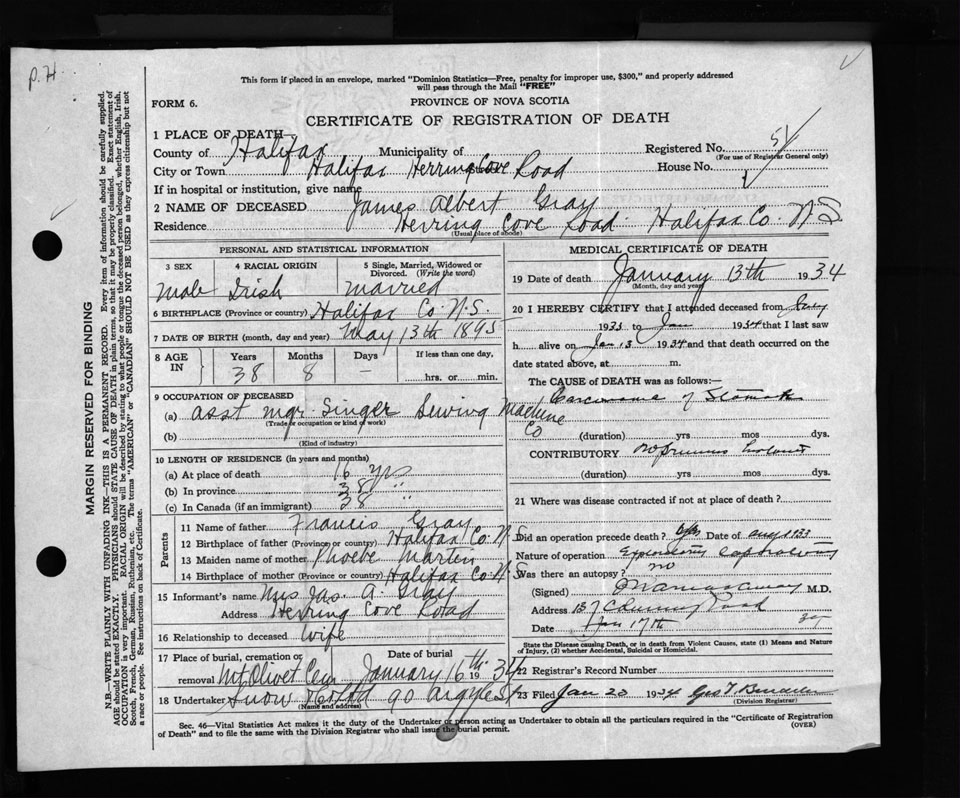 P.H
This form if placed in an envelope, marked "Dominion Statistics—Free, penalty for improper use, $300," and properly addressed
will pass through the Mail "FREE"
FORM 6.
PROVINCE OF NOVA SCOTIA
CERTIFICATE OF REGISTRATION OF DEATH
MARGIN RESERVED FOR BINDING
N.B.—WRITE PLAINLY WITH UNFADING INK—THIS IS A PERMANENT RECORD. Every item of information should be carefully supplied.
AGE should be stated EXACTLY. PHYSICIANS should STATE CAUSE OF DEATH in plain terms, so that it may be properly classified. Exact statement of
OCCUPATION is very important. RACIAL ORIGIN will be described by stating to what people or tongue the deceased person belonged, whether English, Irish,
Scotch, French, German, Russian, Ruthenian, etc. The terms "AMERICAN" or "CANADIAN" SHOULD NOT BE USED as they express citizenship but not
a race or people. See instructions on back of Certificate.
1 PLACE OF DEATH—
County of Halifax Municipality of Registered No. 54
(For use of Registrar General only)
City or Town Halifax Herring Cove Road House No.
If in hospital or institution, give name
2 NAME OF DECEASED James Albert Gray
Residence Herring Cove Road Halifax Co. N.S.
(Usual place of abode)
PERSONAL AND STATISTICAL INFORMATION
3 SEX Male
4 RACIAL ORIGIN Irish
5 Single, Married, Widowed or Divorced. (Write the word) Married
6 BIRTHPLACE (Province or country) Halifax Co. N.S.
7 DATE OF BIRTH (month, day and year) May 13th 1895
8 AGE IN Years 38 Months 8 Days — If less than one day, hrs. or min.
9 OCCUPATION OF DECEASED
(a) Asst Mgr. Singer Sewing Machine Co
(Trade or occupation or kind of work)
(b)
(Kind of industry)
10 LENGTH OF RESIDENCE (in years and months)
(a) At place of death 16 yrs
(b) In province 38 "
(c) In Canada (if an immigrant) 38 "
Parents
11 Name of father Francis Gray
12 Birthplace of father (Province or country) Halifax Co. N.S
13 Maiden name of mother Phoebe Martin
14 Birthplace of mother (Province or country) Halifax Co. N.S
15 Informant's name Mrs Jas. A. Gray
Address Herring Cove Road
16 Relationship to deceased Wife
17 Place of burial, cremation or removal Mt Olivet Cem
Date of burial January 16th 1934
18 Undertaker Snow & Co Ltd 90 Argyle St
(Name and address)
MEDICAL CERTIFICATE OF DEATH
19 Date of death January 13th 1934
(Month, day and year)
20 I HEREBY CERTIFY that I attended deceased from
1933 to Jan 1934 that I last saw
h alive on Jan 13 1934 and that death occurred on the
date stated above, at m.
The CAUSE of DEATH was as follows:—
Carcinoma of Stomach
(duration) yrs mos dys.
CONTRIBUTORY
(duration) yrs mos dys.
21 Where was disease contracted if not at place of death?
Did an operation precede death? Yes Date of Aug 1933
Nature of operation Exploratory Laparotomy
Was there an autopsy? no
(Signed) M.D.
Address 137 Road
Date Jan 17th 34
State the Disease causing Death, or in death from Violent Causes, state (1) Means and Nature
of Injury, (2) whether Accidental, Suicidal or Homicidal.
22 Registrar's Record Number
23 Filed Jan 23 1934
(Division Registrar)
Sec. 46—Vital Statistics Act makes it the duty of the Undertaker or person acting as Undertaker to obtain all the particulars required in the "Certificate of Registration
of Death" and to file the same with the Division Registrar who shall issue the burial permit.
(OVER)